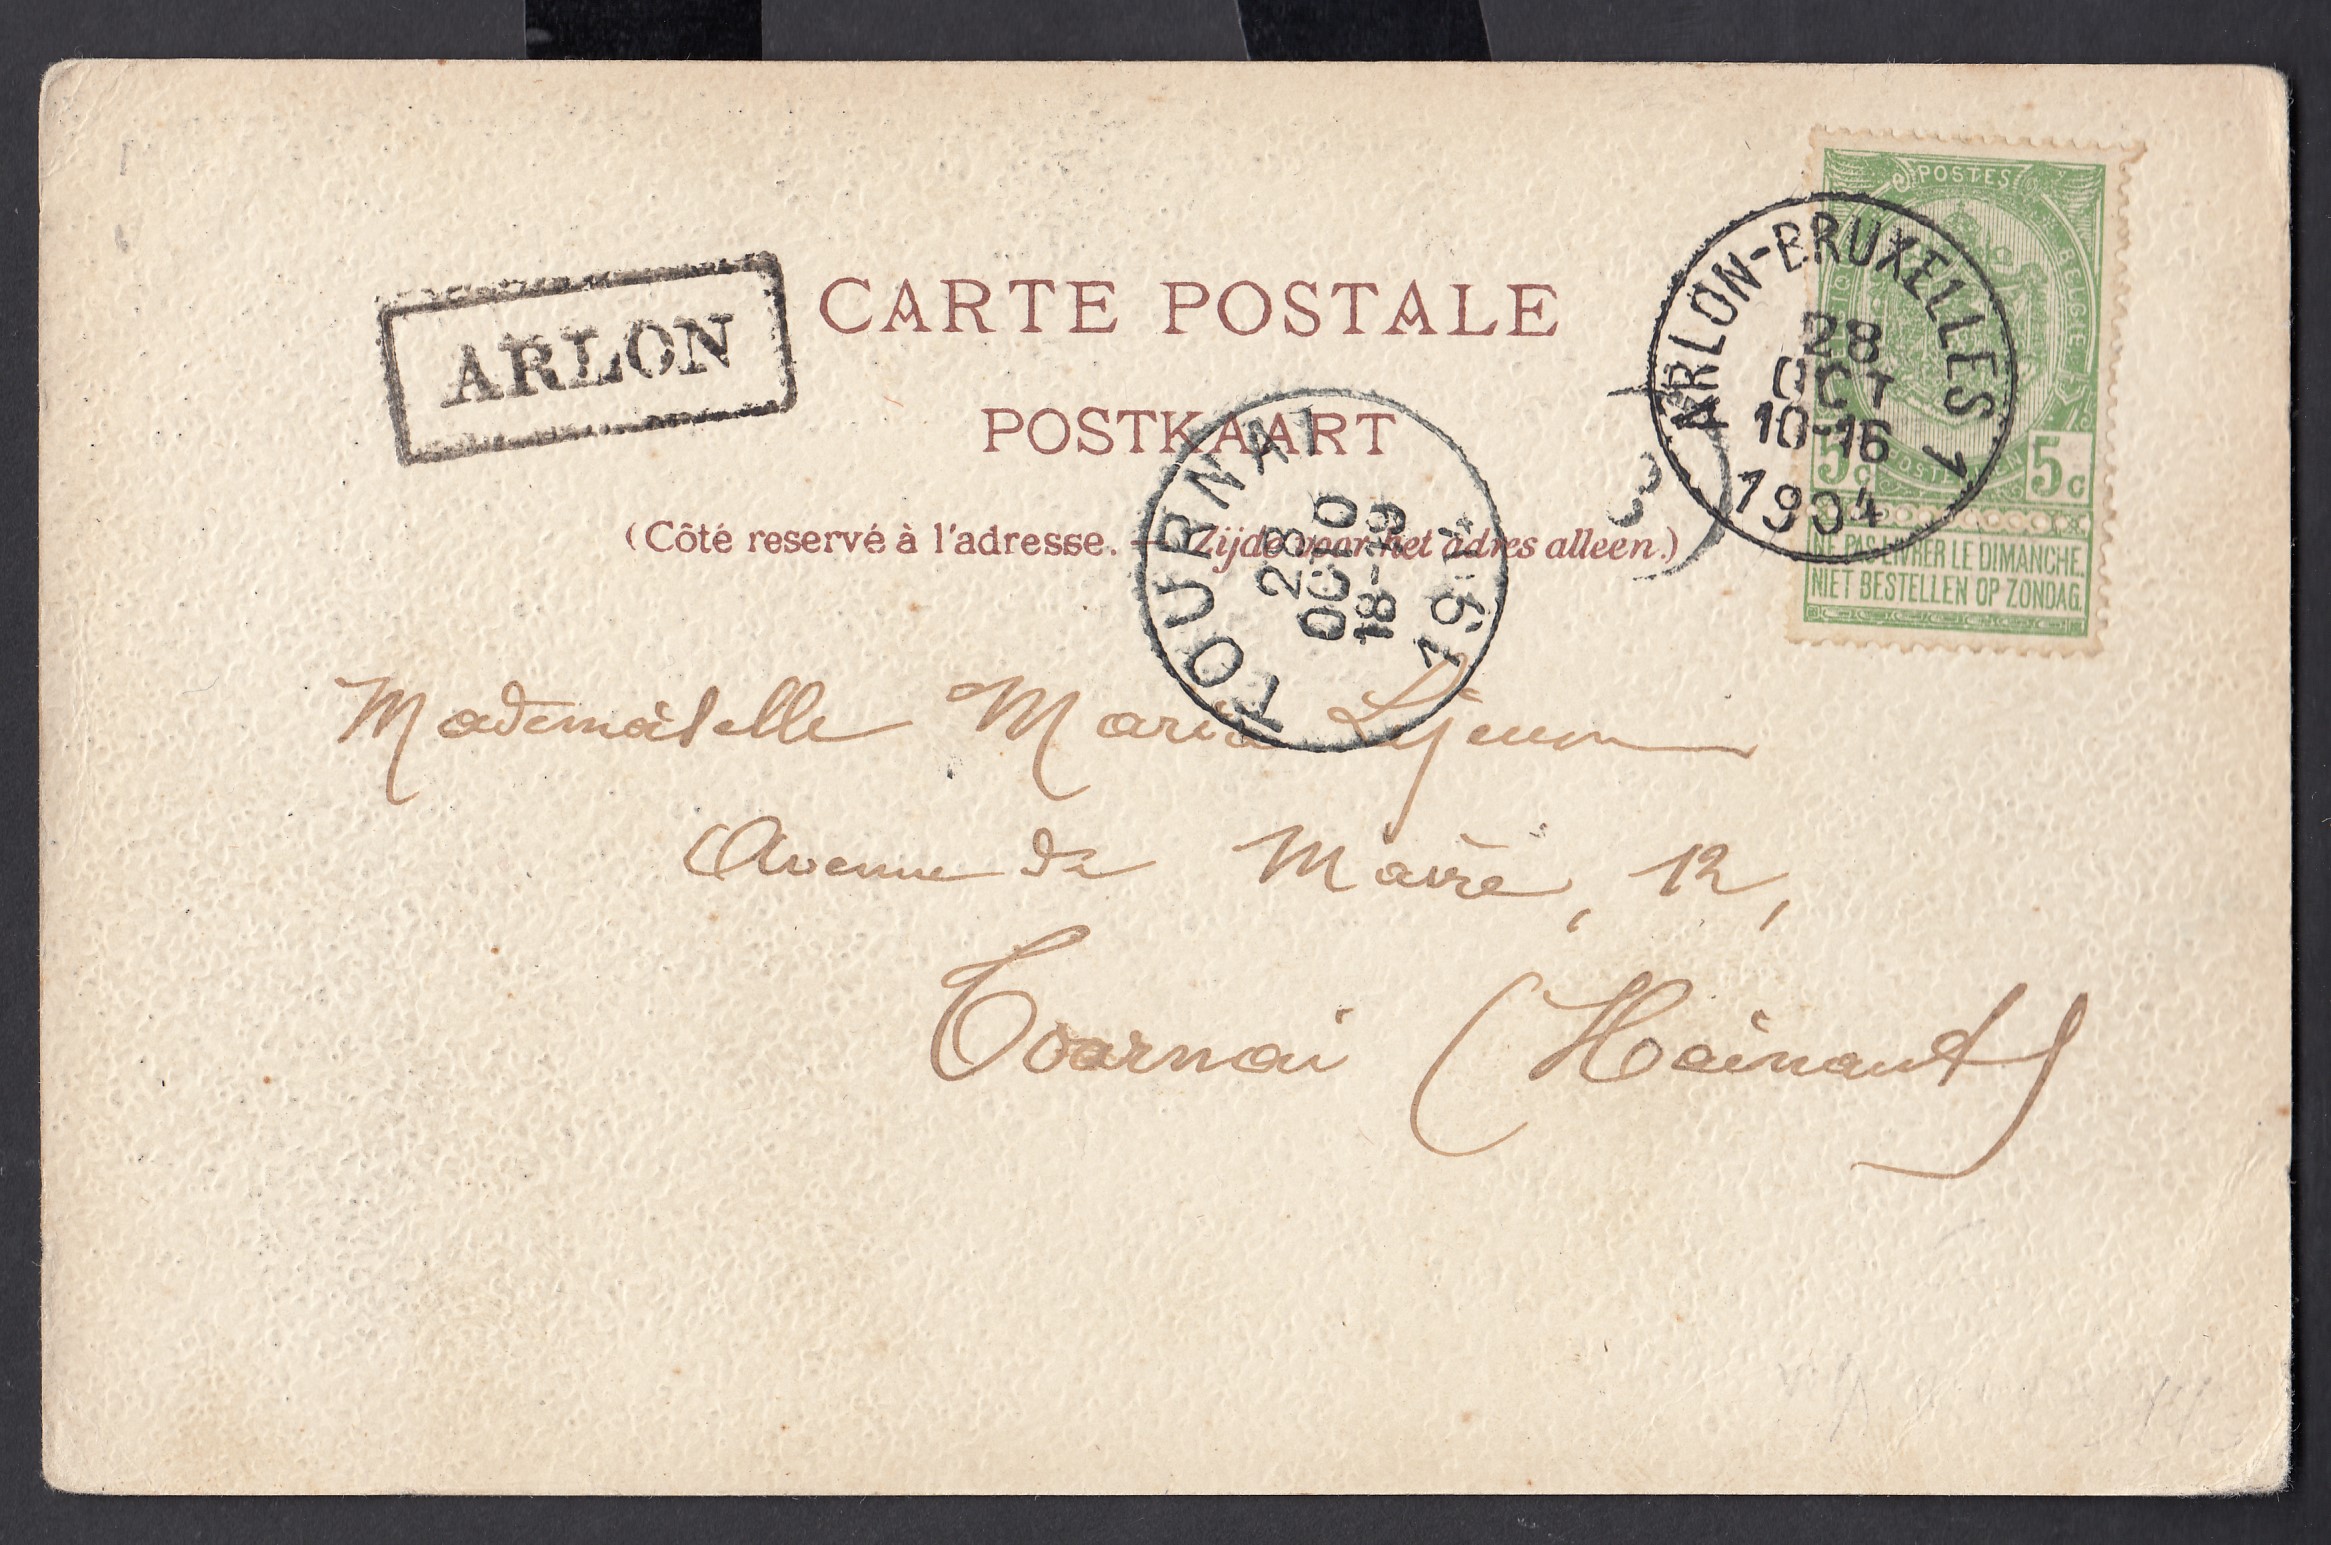 CARTE POSTALE
POSTKAART
(Côté reservé à l'adresse. — Zijde voor het adres alleen.)
ARLON
ARLON-BRUXELLES 1
28
OCT
10-16
1904
POSTES
BELGIE
5c 5c
NE PAS LIVRER LE DIMANCHE.
NIET BESTELLEN OP ZONDAG.
TOURNAI
28
OCTO
18-19
1904
Mademoiselle Maria Lejeune
Avenue de Maire, 12,
Tournai (Hainaut)